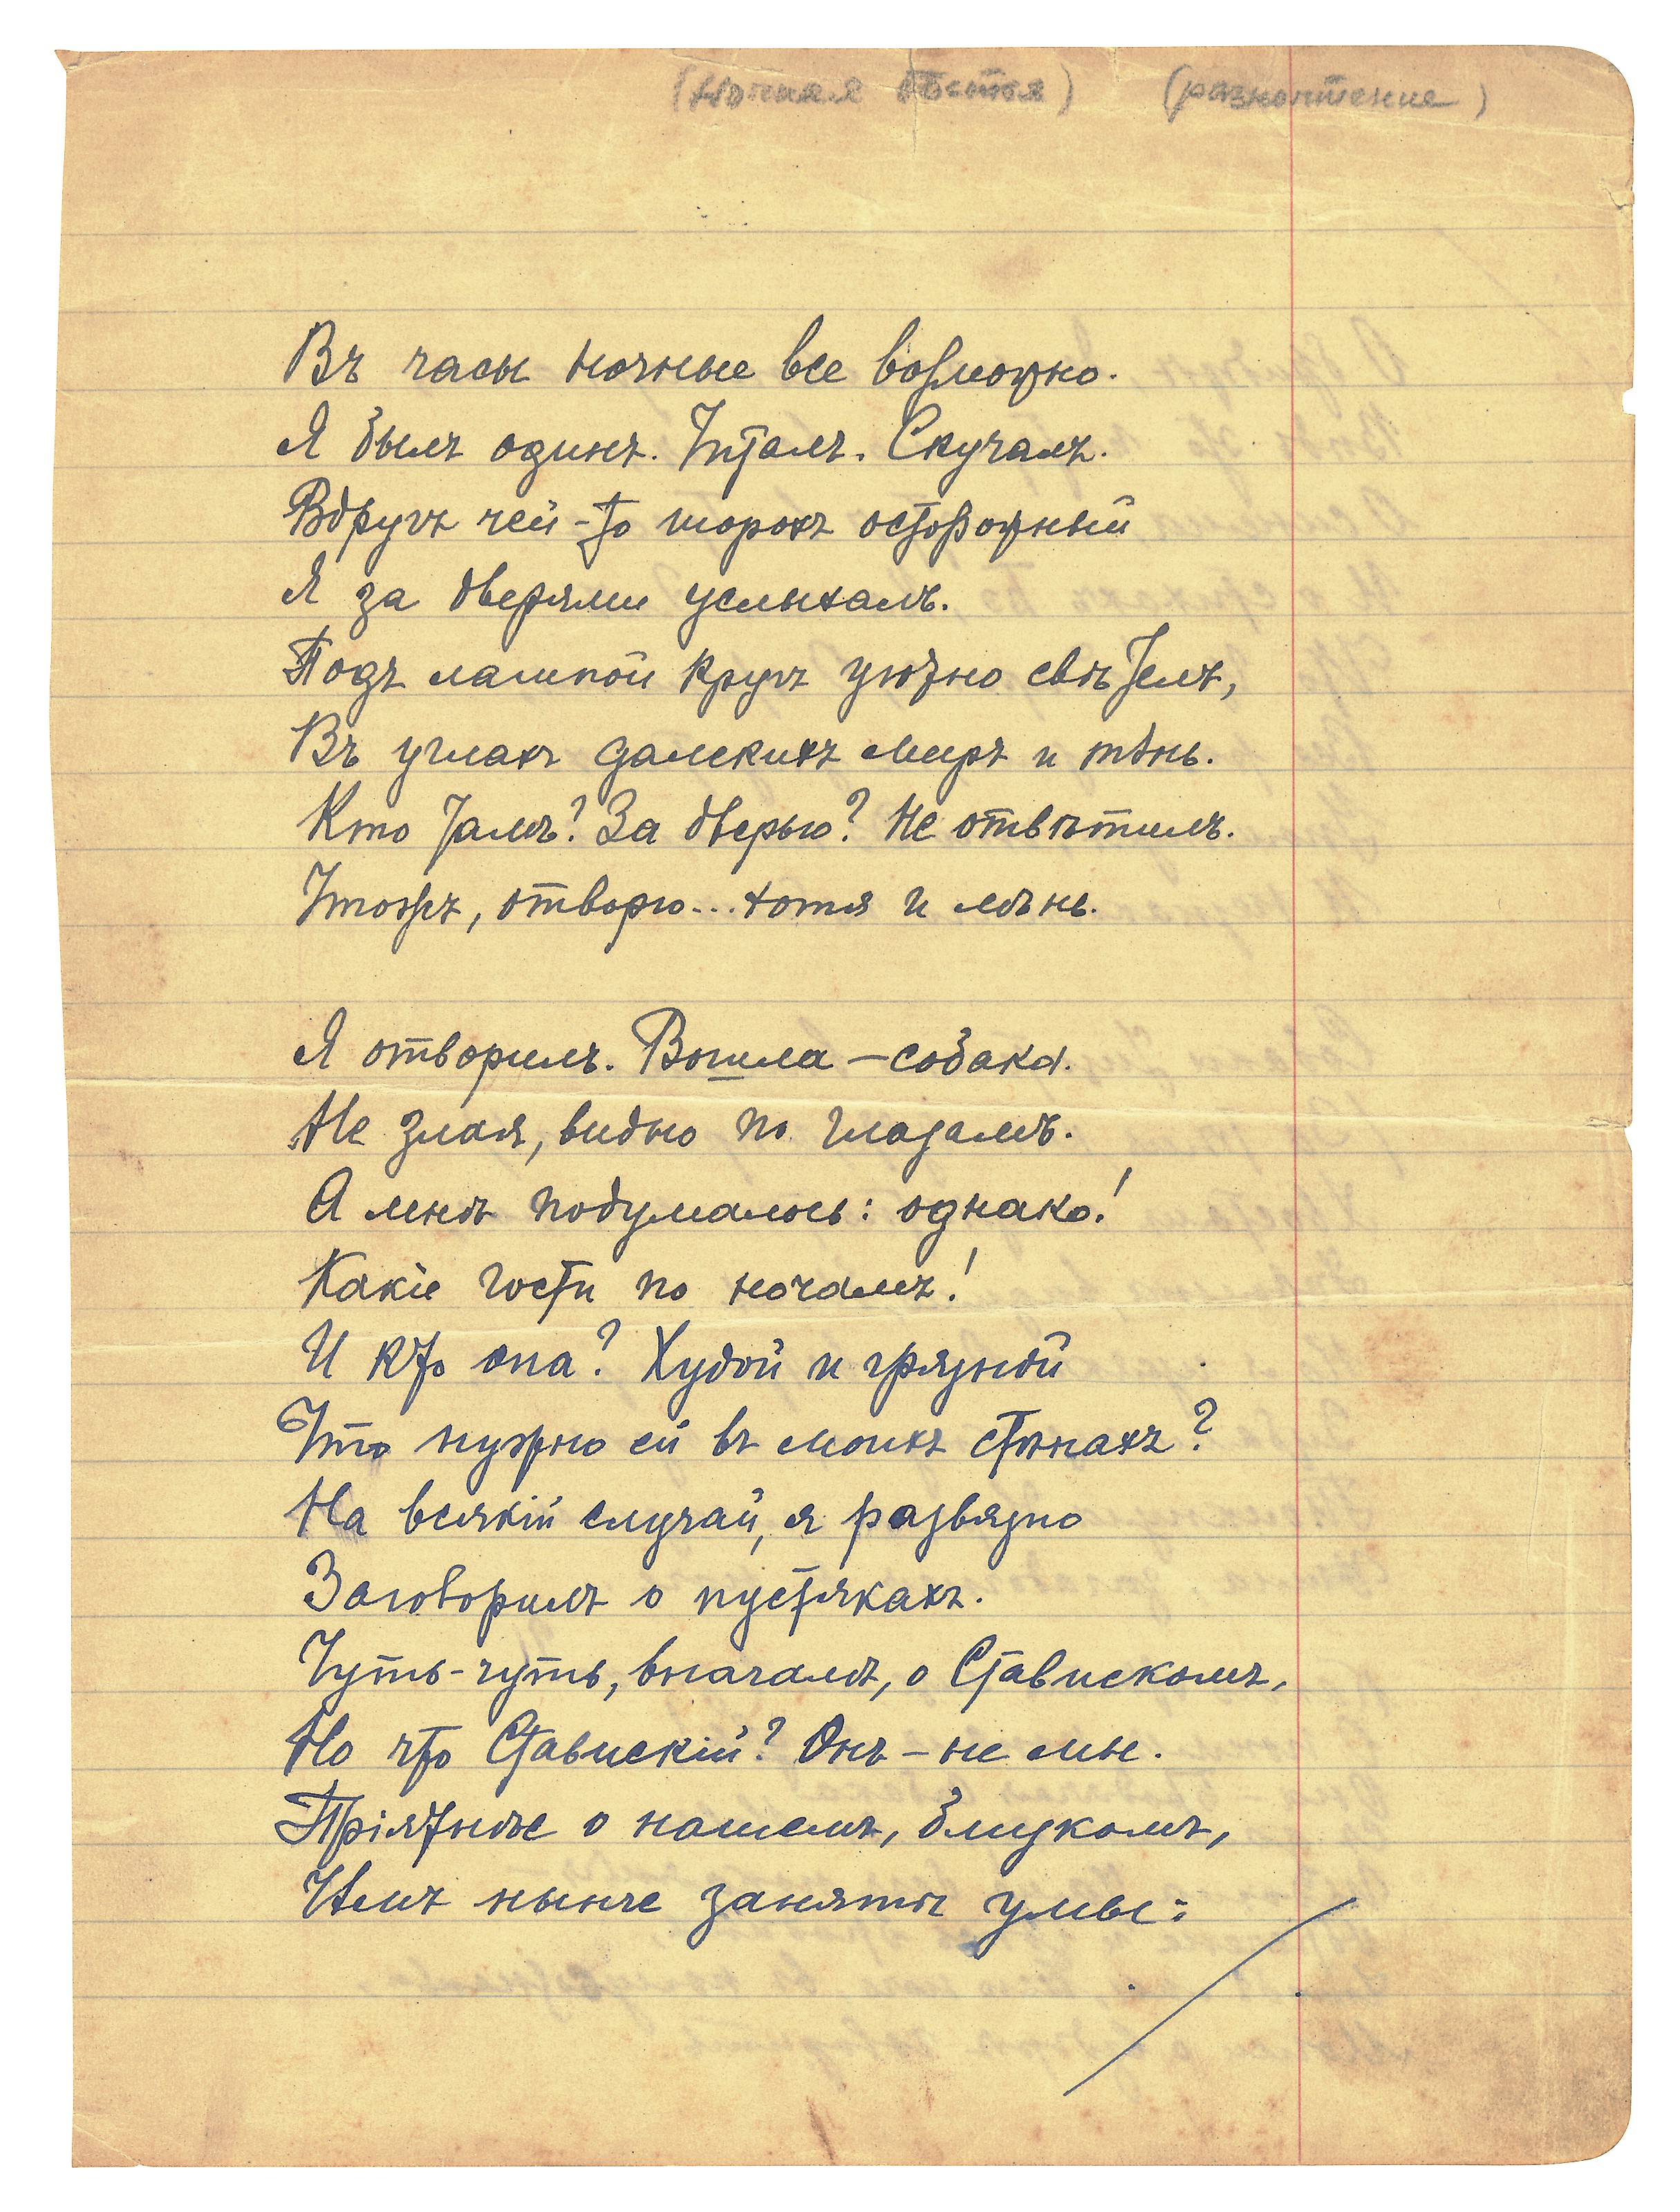 (Ночная Гостья) (разночтение)
Въ часы ночные все возможно.
Я былъ одинъ. Читалъ. Скучалъ.
Вдругъ чей-то шорохъ осторожный
Я за дверями услыхалъ.
Подъ лампой кругъ уютно свѣтелъ,
Въ углахъ далекихъ миръ и тѣнь.
Кто тамъ? За дверью? Не отвѣтилъ.
Чтожъ, отворю... хотя и лѣнь.
Я отворилъ. Вошла – собака.
Не злая, видно по глазамъ.
А мнѣ подумалось: однако!
Какіе гости по ночамъ!
И кто она? Худой и грязной
Что нужно ей въ моихъ стѣнахъ?
На всякій случай, я развязно
Заговорилъ о пустякахъ.
Чуть-чуть, вначалѣ, о Ставискомъ,
Но что Ставискій? Онъ – не мы.
Пріятнѣе о нашемъ, близкомъ,
Чѣмъ нынче заняты умы: